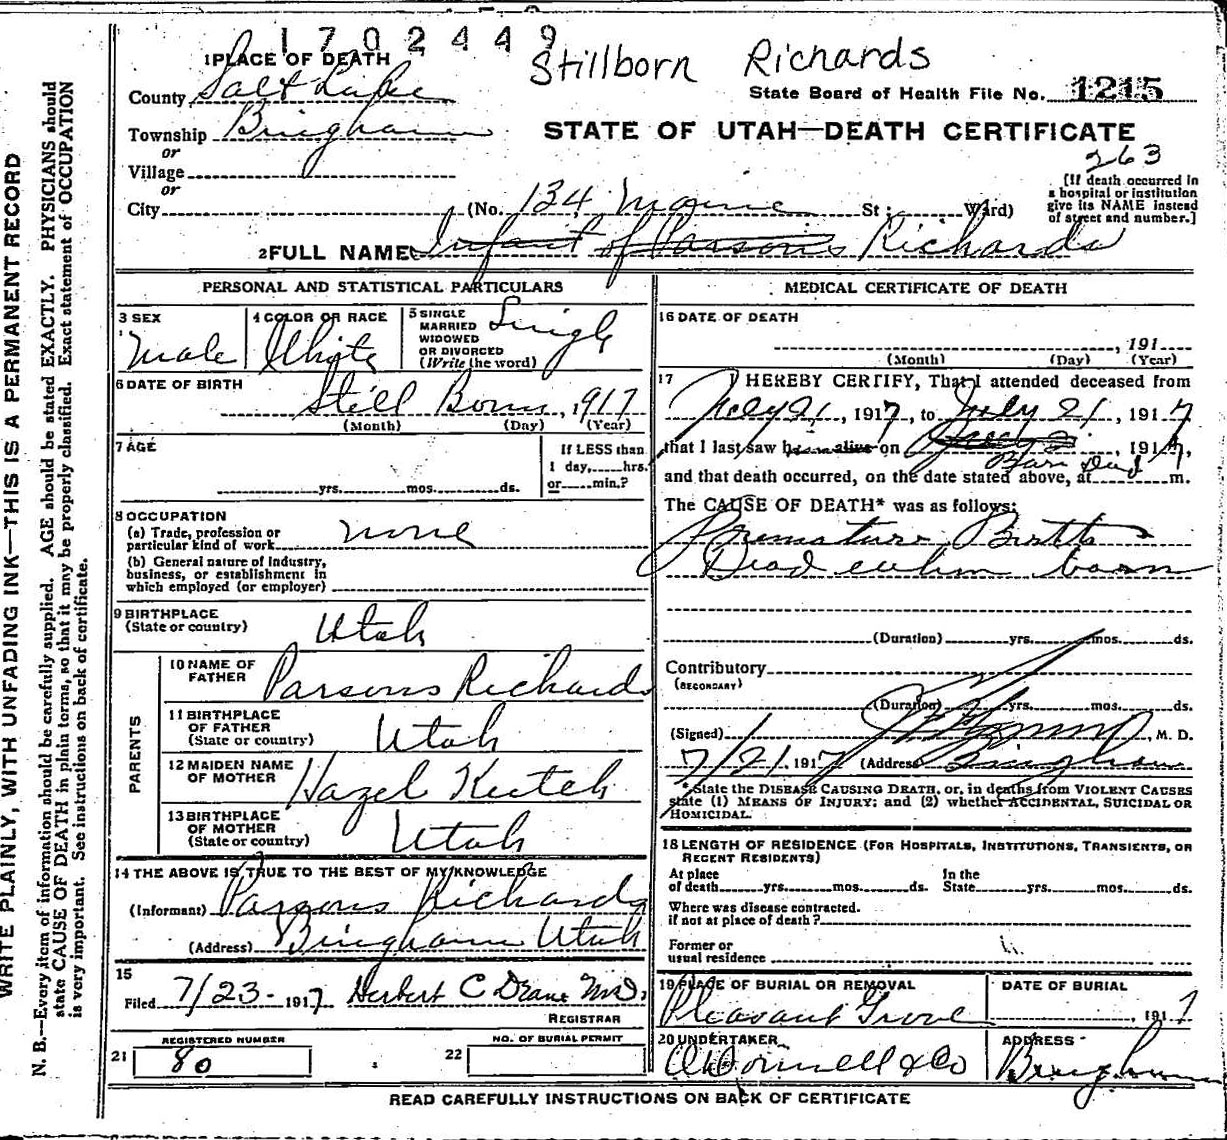 1702449
Stillborn Richards
1 PLACE OF DEATH
County Salt Lake
State Board of Health File No. 1215
Township Bingham
STATE OF UTAH—DEATH CERTIFICATE
or
Village
263
or
City (No. 134 Maine St; Ward)
[If death occurred in
a hospital or institution
give its NAME instead
of street and number.]
2 FULL NAME Infant of Parsons Richards
PERSONAL AND STATISTICAL PARTICULARS
3 SEX
Male
4 COLOR OR RACE
White
5 SINGLE
MARRIED
WIDOWED
OR DIVORCED
(Write the word)
Single
6 DATE OF BIRTH
Still Born, 1917
(Month) (Day) (Year)
7 AGE
yrs. mos. ds.
If LESS than
1 day, hrs.
or min.?
8 OCCUPATION
(a) Trade, profession or
particular kind of work none
(b) General nature of industry,
business, or establishment in
which employed (or employer)
9 BIRTHPLACE
(State or country) Utah
PARENTS
10 NAME OF
FATHER Parsons Richards
11 BIRTHPLACE
OF FATHER
(State or country) Utah
12 MAIDEN NAME
OF MOTHER Hazel
13 BIRTHPLACE
OF MOTHER
(State or country) Utah
14 THE ABOVE IS TRUE TO THE BEST OF MY KNOWLEDGE
(Informant) Parsons Richards
(Address) Bingham Utah
15
Filed 7/23- 1917 Herbert C Deane M.D.
REGISTRAR
REGISTERED NUMBER
21 80
NO. OF BURIAL PERMIT
22
MEDICAL CERTIFICATE OF DEATH
16 DATE OF DEATH
, 191
(Month) (Day) (Year)
17 I HEREBY CERTIFY, That I attended deceased from
July 21, 1917, to July 21, 1917
that I last saw him alive on July 21, 1917,
Born Dead
and that death occurred, on the date stated above, at m.
The CAUSE OF DEATH* was as follows:
Premature Birth
Dead when born
(Duration) yrs. mos. ds.
Contributory
(SECONDARY)
(Duration) yrs. mos. ds.
(Signed) , M. D.
7/21, 1917 (Address) Bingham
*State the DISEASE CAUSING DEATH, or, in deaths from VIOLENT CAUSES
state (1) MEANS OF INJURY; and (2) whether ACCIDENTAL, SUICIDAL OR
HOMICIDAL.
18 LENGTH OF RESIDENCE (FOR HOSPITALS, INSTITUTIONS, TRANSIENTS, OR
RECENT RESIDENTS)
At place
of death yrs. mos. ds.
In the
State yrs. mos. ds.
Where was disease contracted.
if not at place of death?
Former or
usual residence
19 PLACE OF BURIAL OR REMOVAL
Pleasant Grove
DATE OF BURIAL
, 1917
20 UNDERTAKER
O'Donnell & Co
ADDRESS
Bingham
READ CAREFULLY INSTRUCTIONS ON BACK OF CERTIFICATE
WRITE PLAINLY, WITH UNFADING INK—THIS IS A PERMANENT RECORD
N. B.—Every item of information should be carefully supplied. AGE should be stated EXACTLY. PHYSICIANS should
state CAUSE OF DEATH in plain terms, so that it may be properly classified. Exact statement of OCCUPATION
is very important. See instructions on back of certificate.